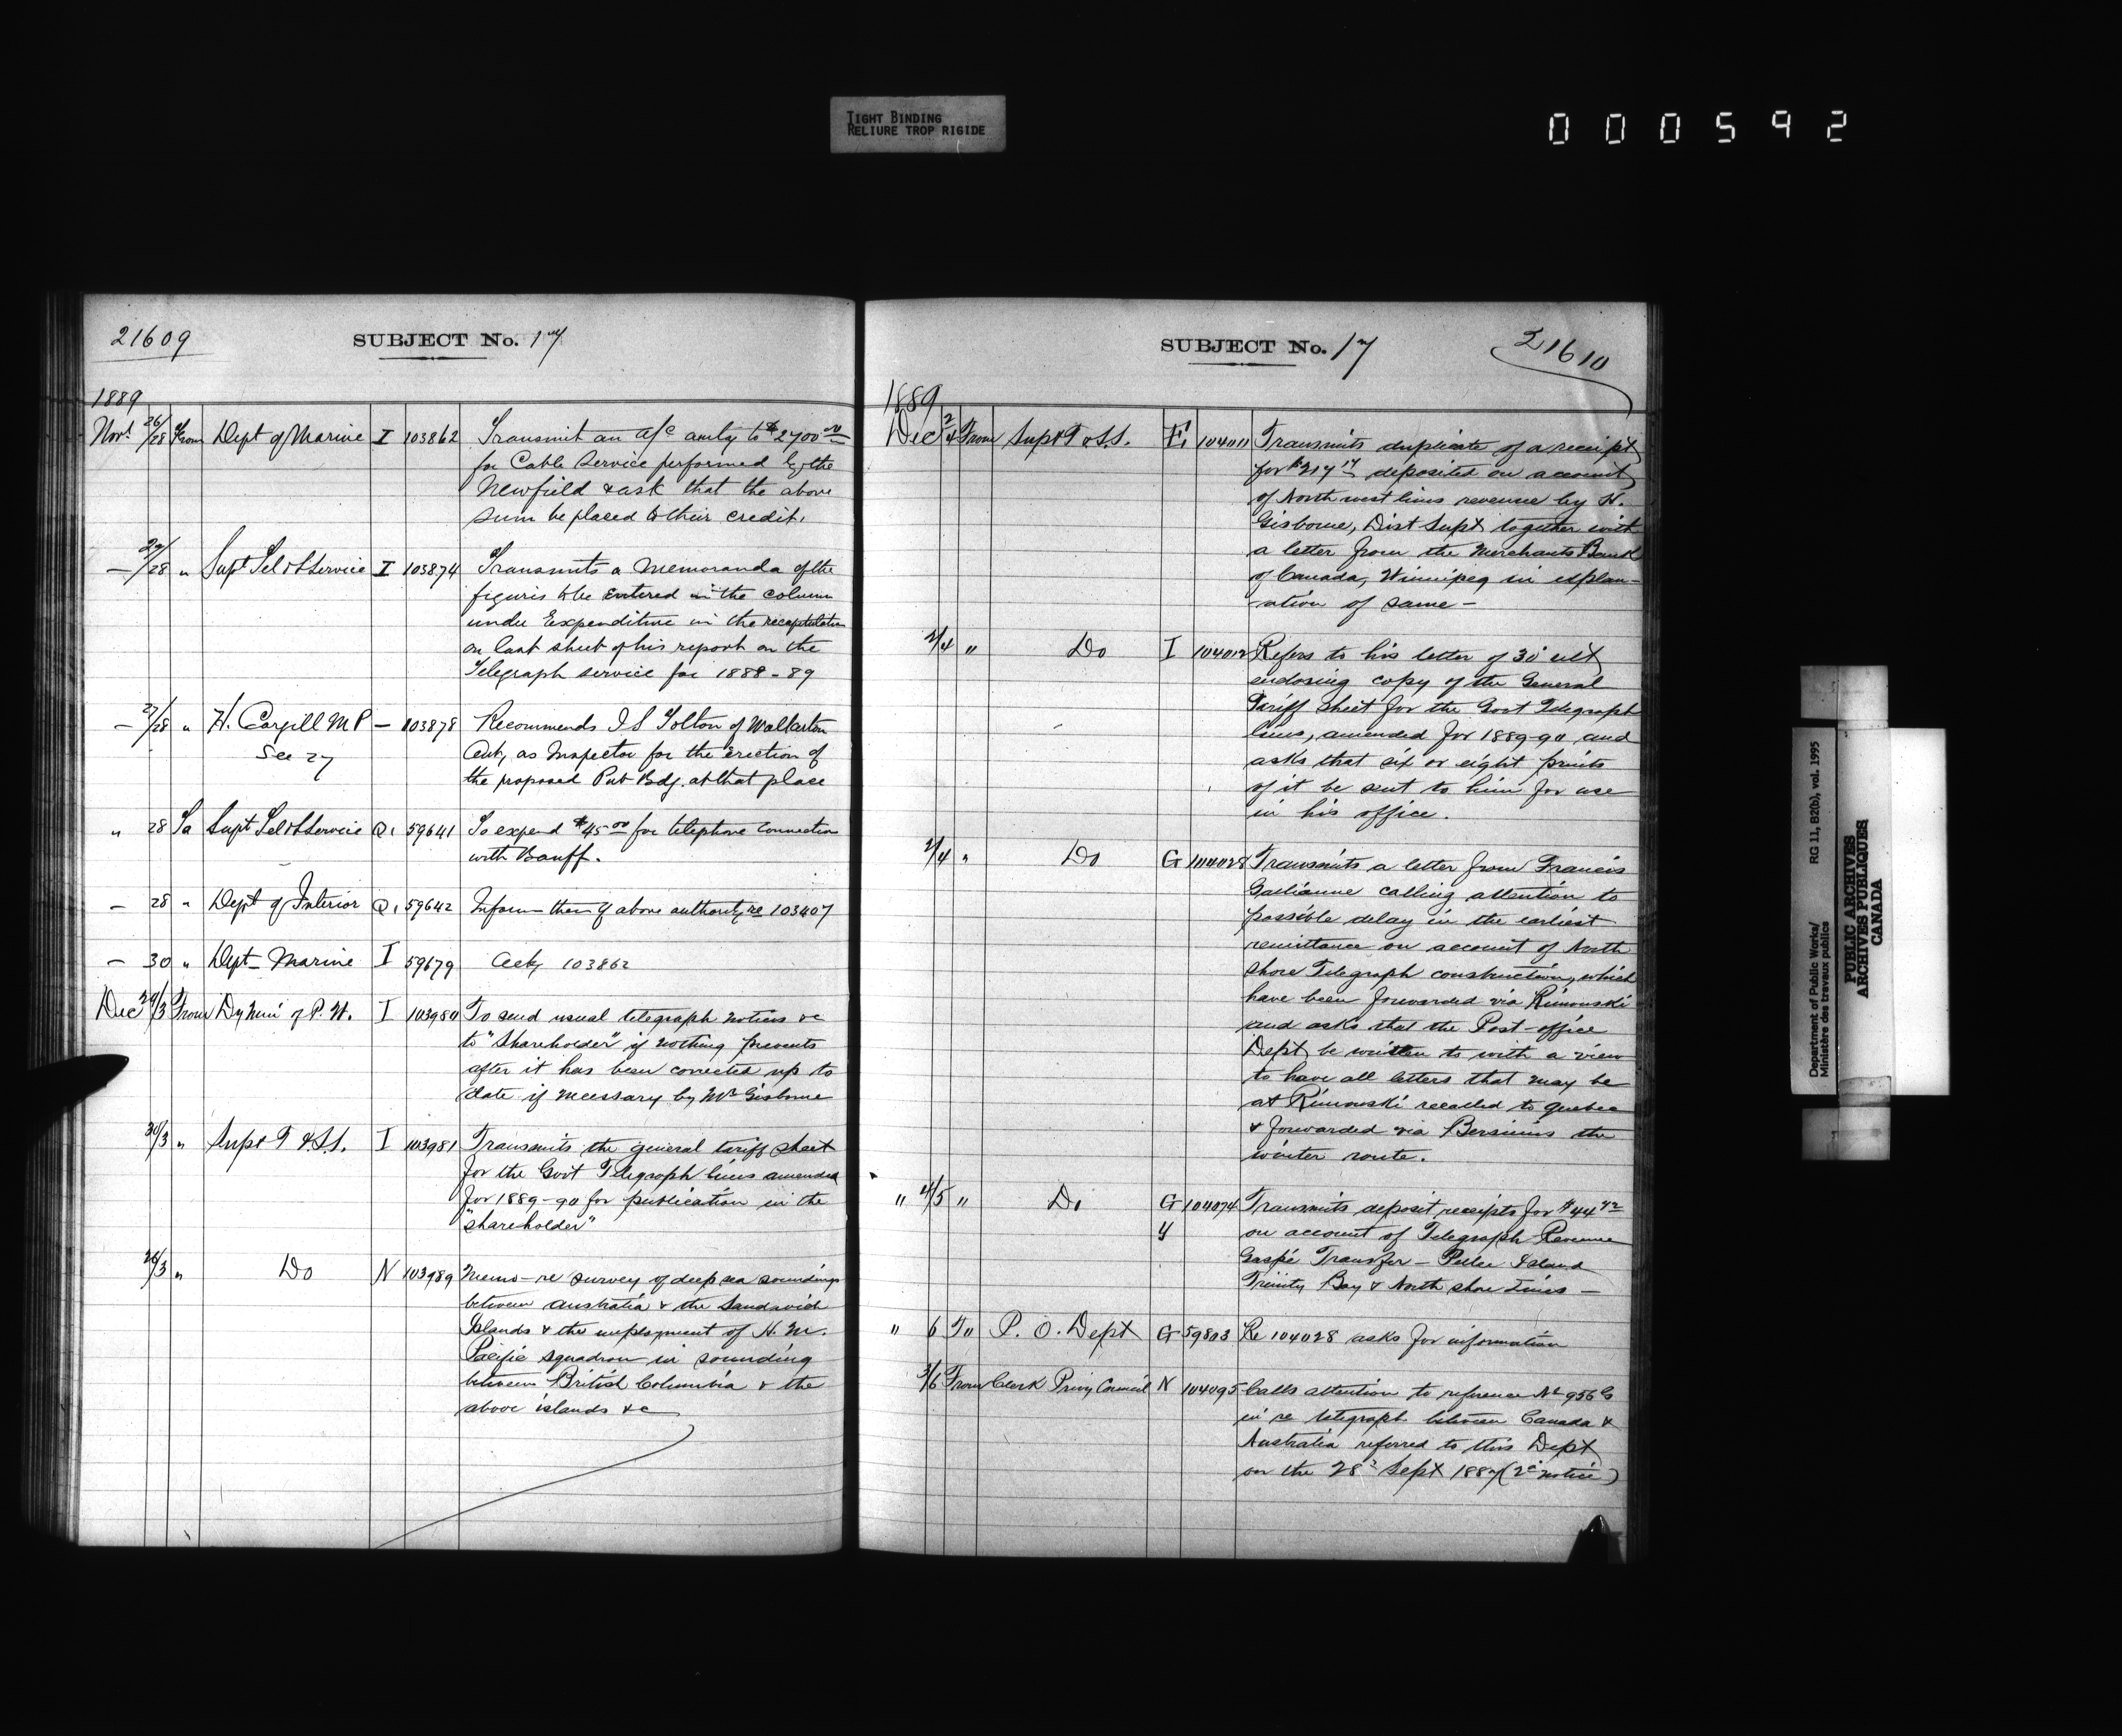 TIGHT BINDING
RELIURE TROP RIGIDE
000592
21609
SUBJECT No. 17
1889
Novr 26/28 From Dept of Marine I 103862 Transmit an a/c amtg to $2700.00
for Cable Service performed by the
Newfield & ask that the above
sum be placed to their credit.
— 27/28 " Supt Tel & S Service I 103874 Transmits a Memoranda of the
figures to be Entered in the column
under Expenditure in the recapitulation
on last sheet of his report on the
Telegraph service for 1888-89
— 27/28 " H. Cargill M P — 103878 Recommends J S Tolton of Walkerton
See 27
Ont, as Inspector for the Erection of
the proposed Pub Bdg. at that place
" 28 To Supt Tel & S Service Q1 59641 To expend $45.00 for telephone connection
with Banff.
— 28 " Dept of Interior Q1 59642 Inform them of above authority re 103407
— 30 " Dept Marine I 59679 Ackg 103862
Dec 29/3 From Dy Min of P. W. I 103980 To send usual telegraph notices &c
to "Shareholder" if nothing prevents
after it has been corrected up to
date if necessary by Mr Gisborne
30/3 " Supt T & S.S. I 103981 Transmits the general tariff sheet
for the Govt Telegraph lines amended
for 1889-90 for publication in the
"shareholder"
26/3 " Do N 103989 Memo - re survey of deep sea soundings
between Australia & the Sandwich
Islands & the employment of H. M.
Pacific squadron in sounding
between British Columbia & the
above islands &c
SUBJECT No. 17
21610
1889
Dec 2/4 From Supt T & S.S. E1 104011 Transmits duplicate of a receipt
for $217.17 deposited on account
of North west lines revenue by H.
Gisborne, Dist Supt together with
a letter from the Merchants Bank
of Canada, Winnipeg in explan-
-ation of same -
2/4 " Do I 104012 Refers to his letter of 30 ult
enclosing copy of the General
Tariff sheet for the Govt Telegraph
lines, amended for 1889-90 and
asks that six or eight prints
of it be sent to him for use
in his office.
2/4 " Do G 104028 Transmits a letter from Francis
calling attention to
possible delay in the earliest
remittance on account of North
shore Telegraph construction, which
have been forwarded via Rimouski
and asks that the Post-office
Dept be written to with a view
to have all letters that may be
at Rimouski recalled to Quebec
& forwarded via Bersimis the
winter route.
" 4/5 " Do G 104074 Transmits deposit receipts for $44.42
y
on account of Telegraph Revenue
Gaspé Transfer - Pelee Island
Trinity Bay & North shore Lines -
" 6 To P. O. Dept G 59803 Re 104028 asks for information
3/6 From Clerk Privy Council N 104095 Calls attention to reference No 956 G
in re telegraph between Canada &
Australia referred to this Dept
on the 28 Sept 1887 (2d notice)
Department of Public Works/
Ministère des travaux publics
RG 11, B2(b), vol. 1995
PUBLIC ARCHIVES
ARCHIVES PUBLIQUES
CANADA